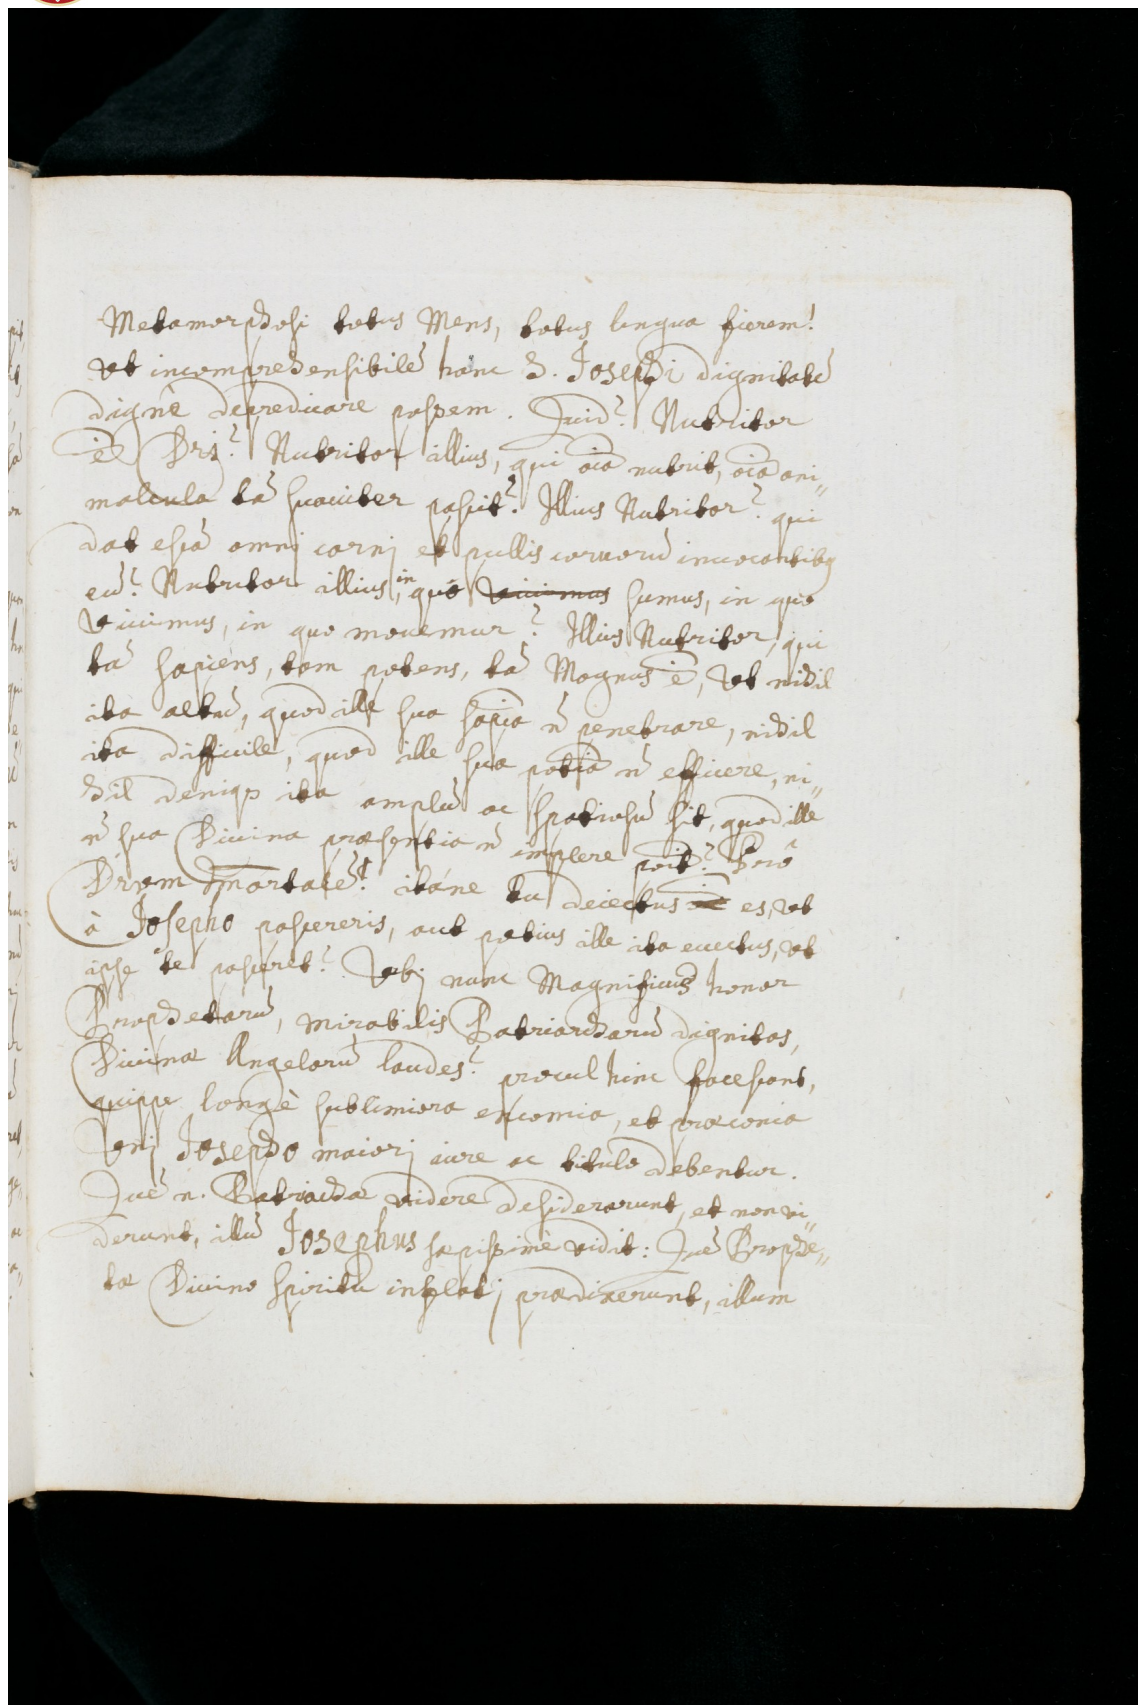 Metamorphosi totus Mens, totus lingua fierem!
vt incomprehensibilẽ hanc S. Josephi dignitatẽ
dignè depredicare possem. Quid? Nutritor
ẽ Dei? Nutritor illius, qui oĩa nutrit, oĩa ani„
malcula tã suauiter pascit? Illius Nutritor? qui
dat escã omnj carnj et pullis coruorũ inuocantibq
eũ? Nutritor illius, in quo viuimus sumus, in quo
Viuimus, in quo mouemur? Illius Nutritor, qui
tã sapiens, tam potens, tã Magnus ẽ, Vt nihil
ita altũ, quod ille sua sapĩa ñ penetrare, nihil
ita difficile, quod ille sua potĩa ñ efficere, ni„
hil deniqȝ ita amplũ ac spatiosũ sit, quod ille
ñ sua Diuina præsentia ñ implere poit? Prô
immortalẽ! itáne tu deiectus es, vt
à Josepho pascereris, aut potius ille ita euectus, vt
ipse te pasceret? Vbj nunc Magnificus honor
Prophetarũ, mirabilis Patriarcharũ dignitas,
Diuinæ Angelorũ laudes? procul hinc facescant,
quippe longè sublimiora encomia, et præconia
Vnj Josepho maiorj iure ac titulo debentur.
Quẽ n. Patriachæ videre desiderarunt, et non vi
derunt, illũ Josephus sæpissimè vidit: Quẽ Prophe„
tæ Diuino spiritu inflatj prædixerunt, illum